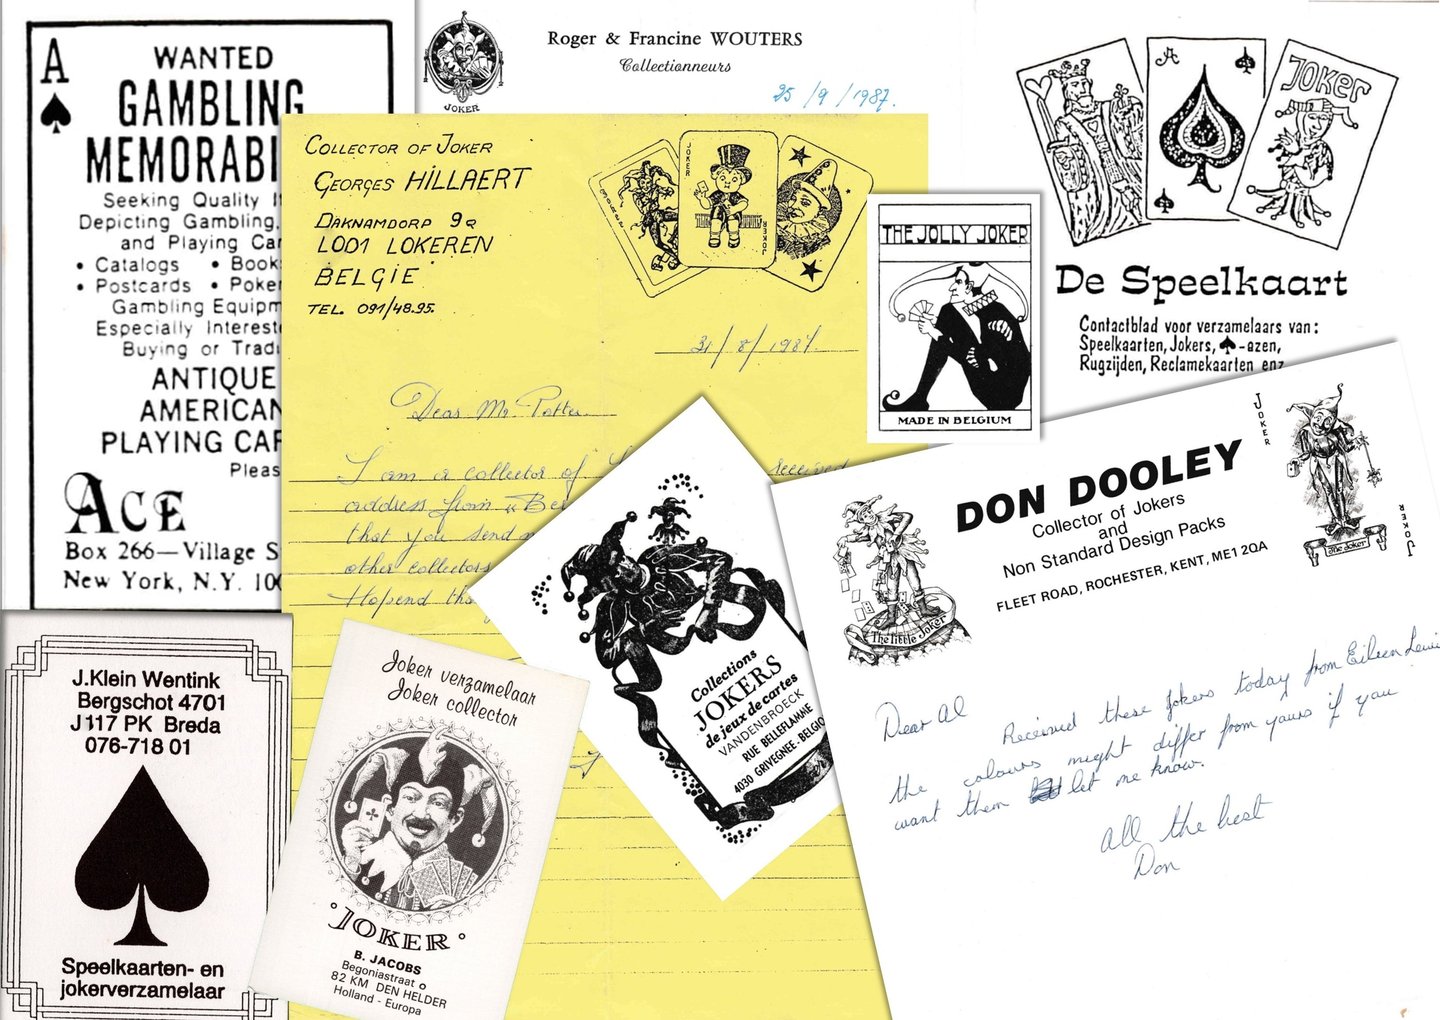 A
WANTED
GAMBLING
MEMORABI
Seeking Quality
Depicting Gambling,
and Playing Car
• Catalogs • Book
• Postcards • Poker
Gambling Equipm
Especially Interest
Buying or Tradi
ANTIQUE
AMERICAN
PLAYING CAR
Pleas
ACE
Box 266—Village S
New York, N.Y. 100
JOKER
Roger & Francine WOUTERS
Collectionneurs
25/9/1987.
COLLECTOR OF JOKER
GEORGES HILLAERT
DAKNAMDORP 92
LOO1 LOKEREN
BELGIE
TEL. 091/48.95.
JOKER
JOKER
31/8/1987.
Dear Mr. Potter.
I am a collector of received
address from "Be
that you send
other collectors
Hopend tha
THE JOLLY JOKER
MADE IN BELGIUM
A
JOKER
De Speelkaart
Contactblad voor verzamelaars van:
Speelkaarten, Jokers, ♠-azen,
Rugzijden, Reclamekaarten enz.
J.Klein Wentink
Bergschot 4701
J117 PK Breda
076-718 01
Speelkaarten- en
jokerverzamelaar
Joker verzamelaar
Joker collector
JOKER
B. JACOBS
Begoniastraat 0
82 KM DEN HELDER
Holland - Europa
Collections
JOKERS
de jeux de cartes
VANDENBROECK
RUE BELLEFLAMME
4030 GRIVEGNEE-BELGIQ
The little Joker
DON DOOLEY
Collector of Jokers
and
Non Standard Design Packs
FLEET ROAD, ROCHESTER, KENT, ME1 2QA
JOKER
The Joker
JOKER
Dear Al
Received these Jokers today from Eileen Lewi
the colours might differ from yours if you
want them let me know.
All the best
Don